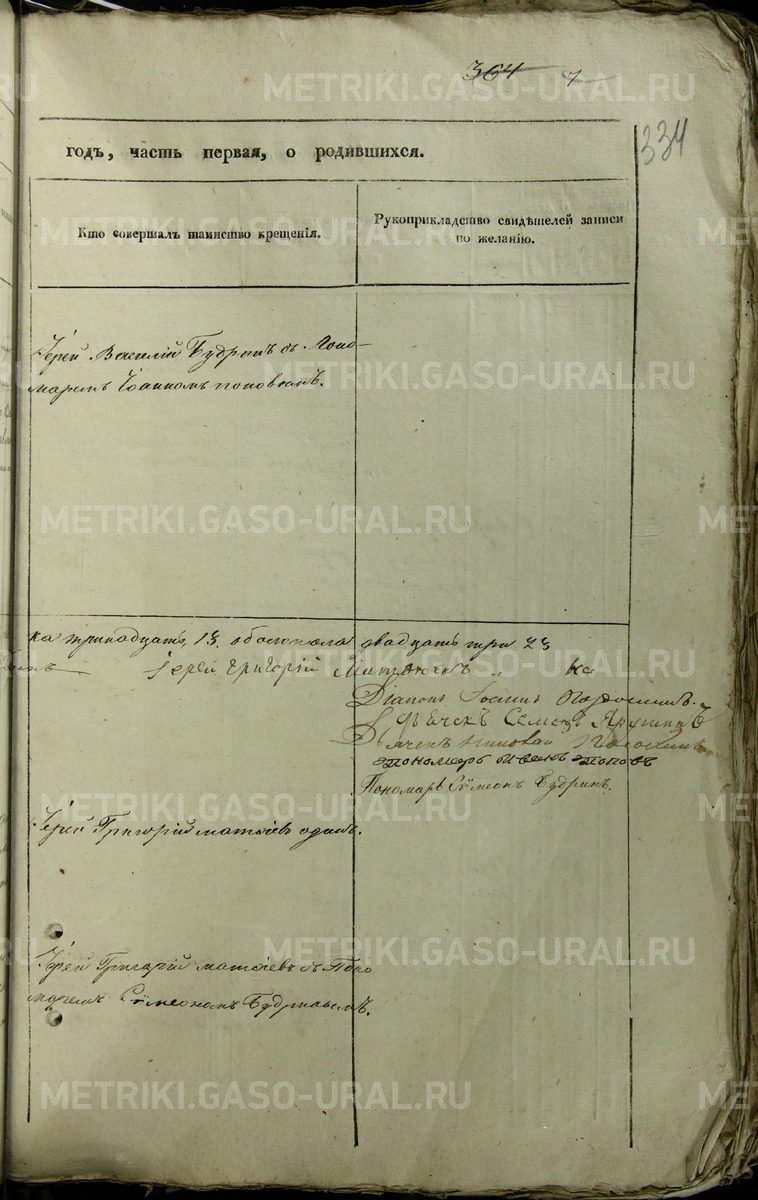 364 7
334
годъ, часть первая, о родившихся.
Кто совершалъ таинство крещенія.
Рукоприкладство свидѣтелей записи
по желанію.
Іерей Василій Будринъ съ Поно-
маремъ Іоанномъ поповымъ.
ка тринадцать 13. обоегопола двадцать три 23
Іерей Григорій
Діаконъ
Дьячекъ Семенъ
Дьячекъ
пономарь Иванъ поповъ
Пономарь Сѵмеонъ Будринъ.
Іерей Григорій матѳіевъ одинъ.
Іерей Григорій матѳіевъ съ Поно
маремъ Сѵмеономъ Будринымъ.
METRIKI.GASO-URAL.RU